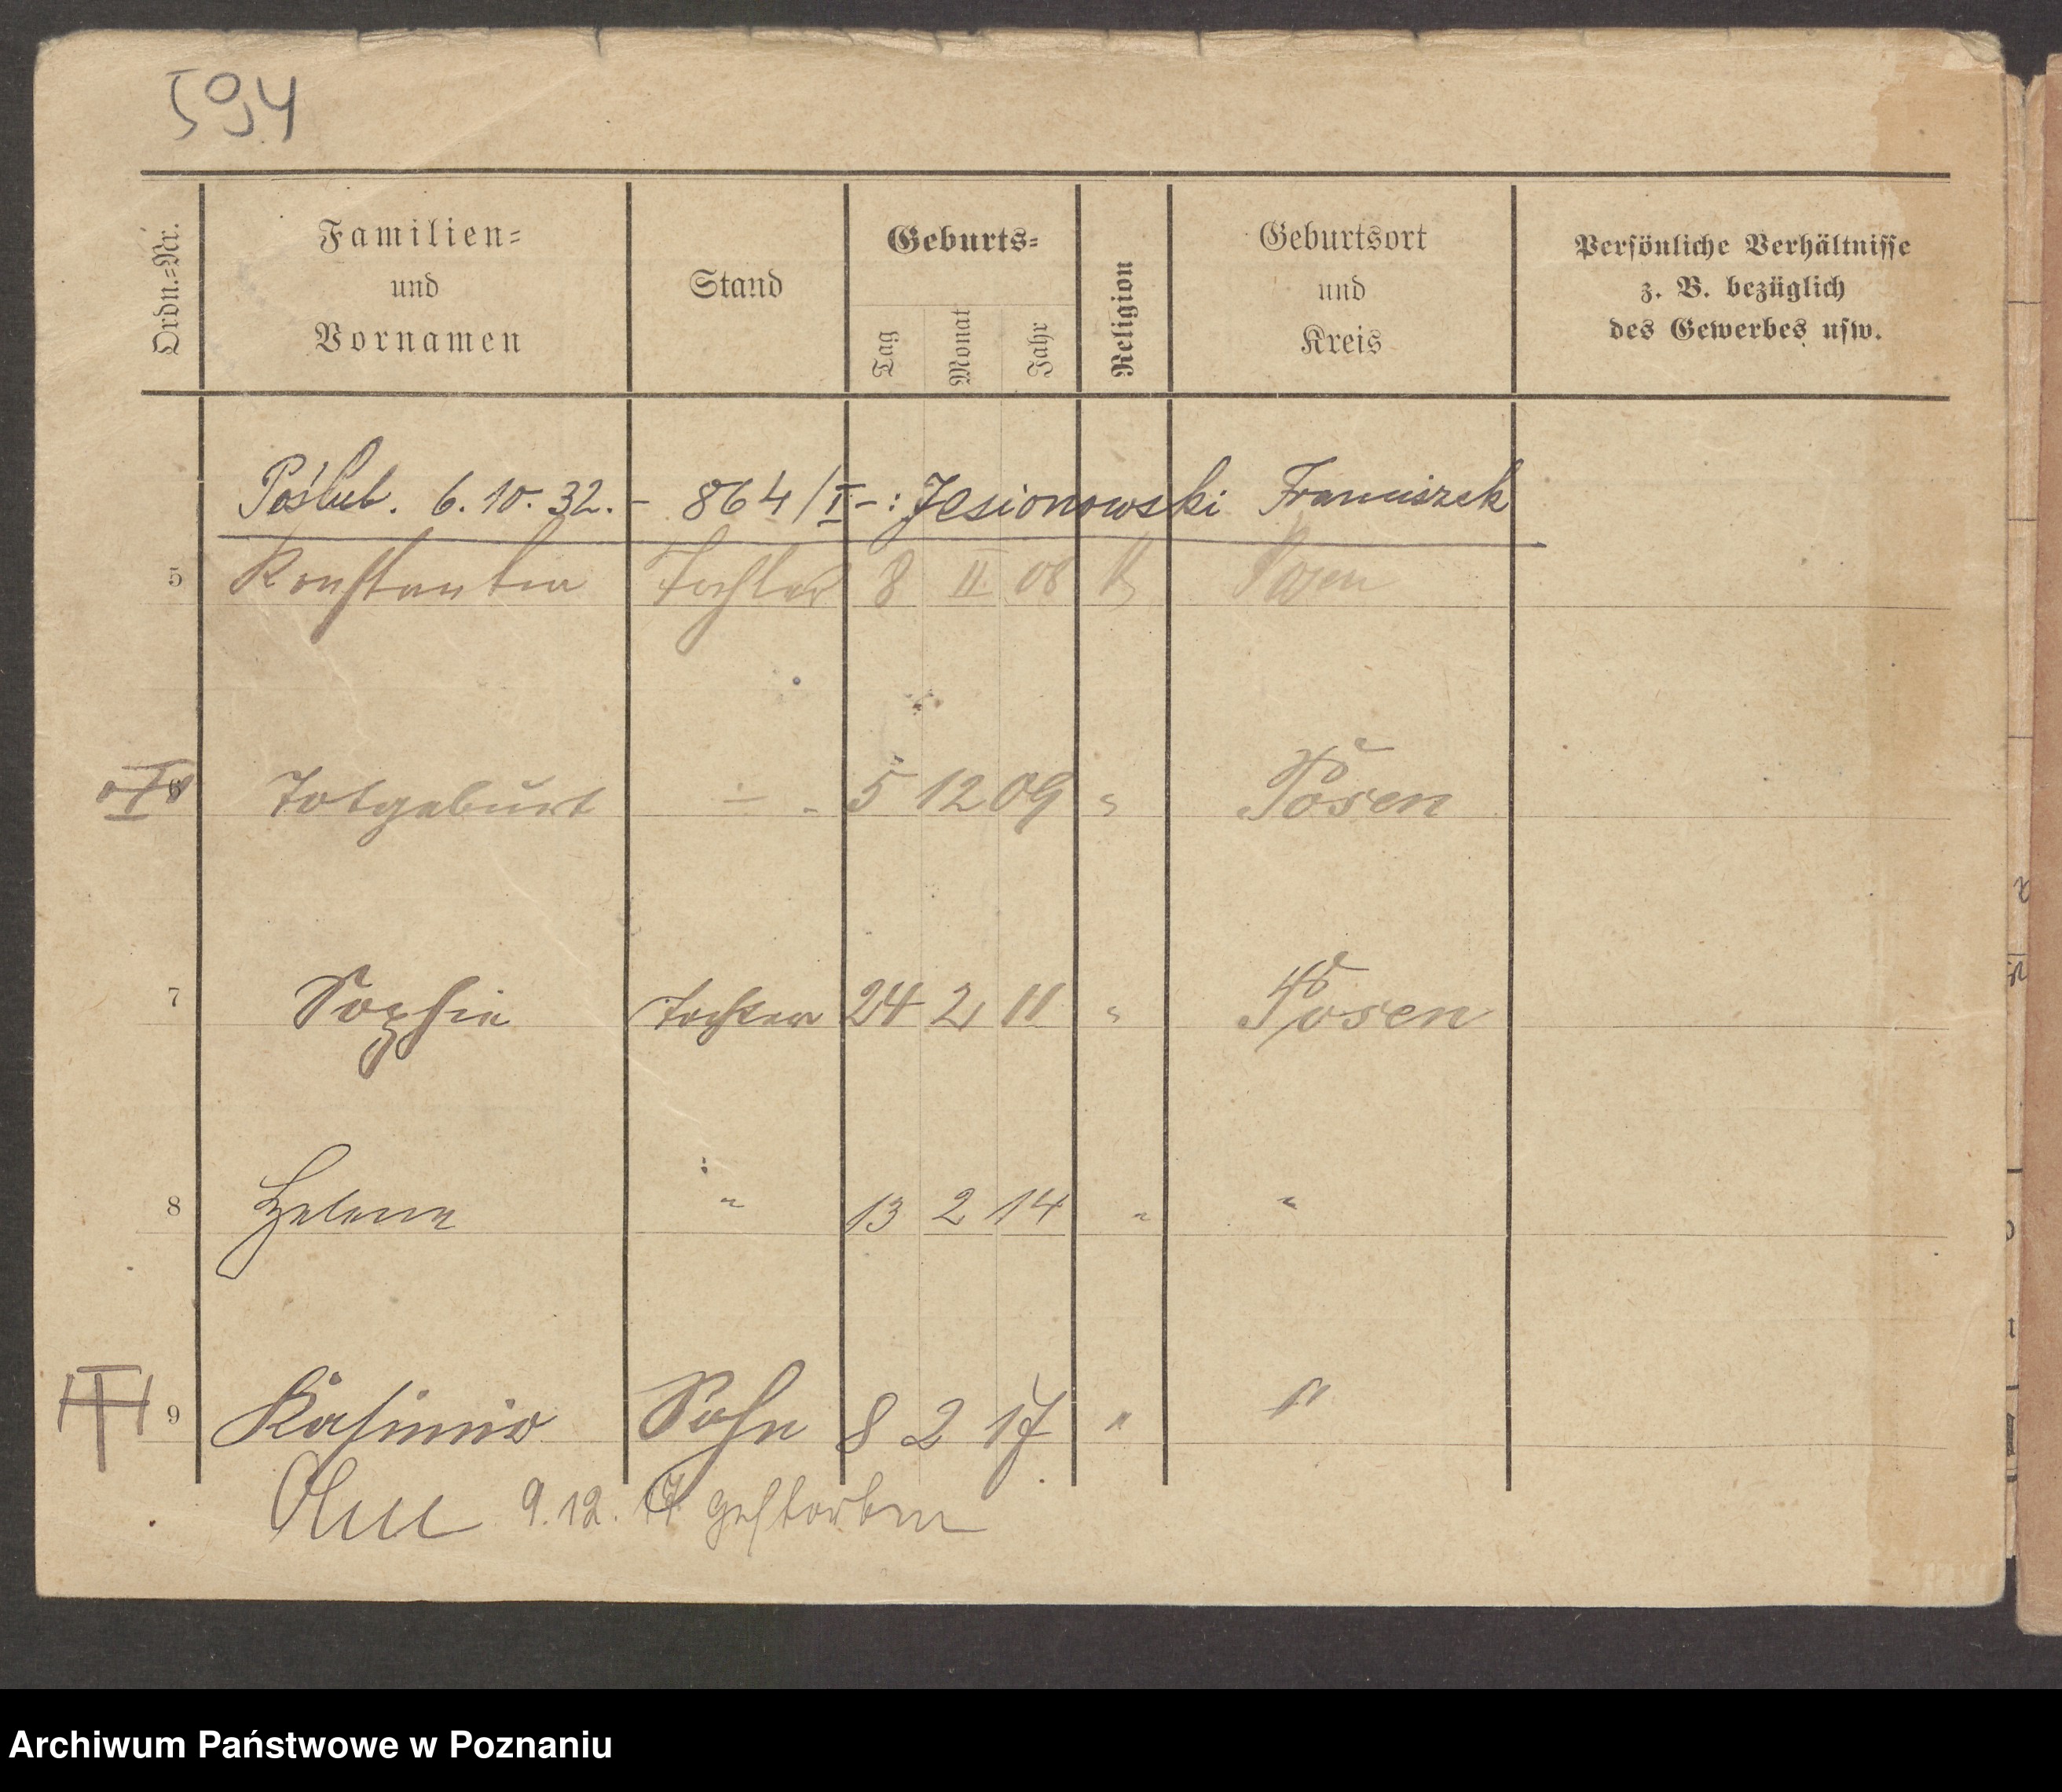 594
Ordn.=Nr. Familien= und Vornamen Stand Geburts= Tag Monat Jahr Religion Geburtsort und Kreis Persönliche Verhältnisse z. B. bezüglich des Gewerbes usw.
Poślub. 6.10.32. - 864/I -: Jesionowski Franciszek
5 Konstantia Tochter 8 II 08 k Posen
6 Totgeburt - 5 12 09 " Posen
7 Sophie Tochter 24 2 11 " Posen
8 Helene " 13 2 14 " "
9 Kasimir Sohn 8 2 17 " "
9.12.17 gestorben
Archiwum Państwowe w Poznaniu